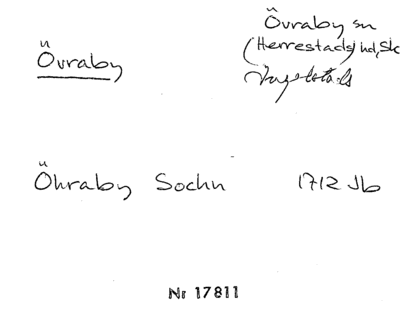 Övraby
Övraby sn
(Herrestads hd, Sk
Ingelstads
Öhraby Sochn 1712 Jb
Nr 17811